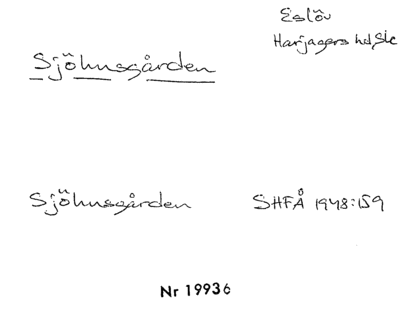 Eslöv
Harjagers hd Sk
Sjöhusgården
Sjöhusgården SHFÅ 1948:159
Nr 19936